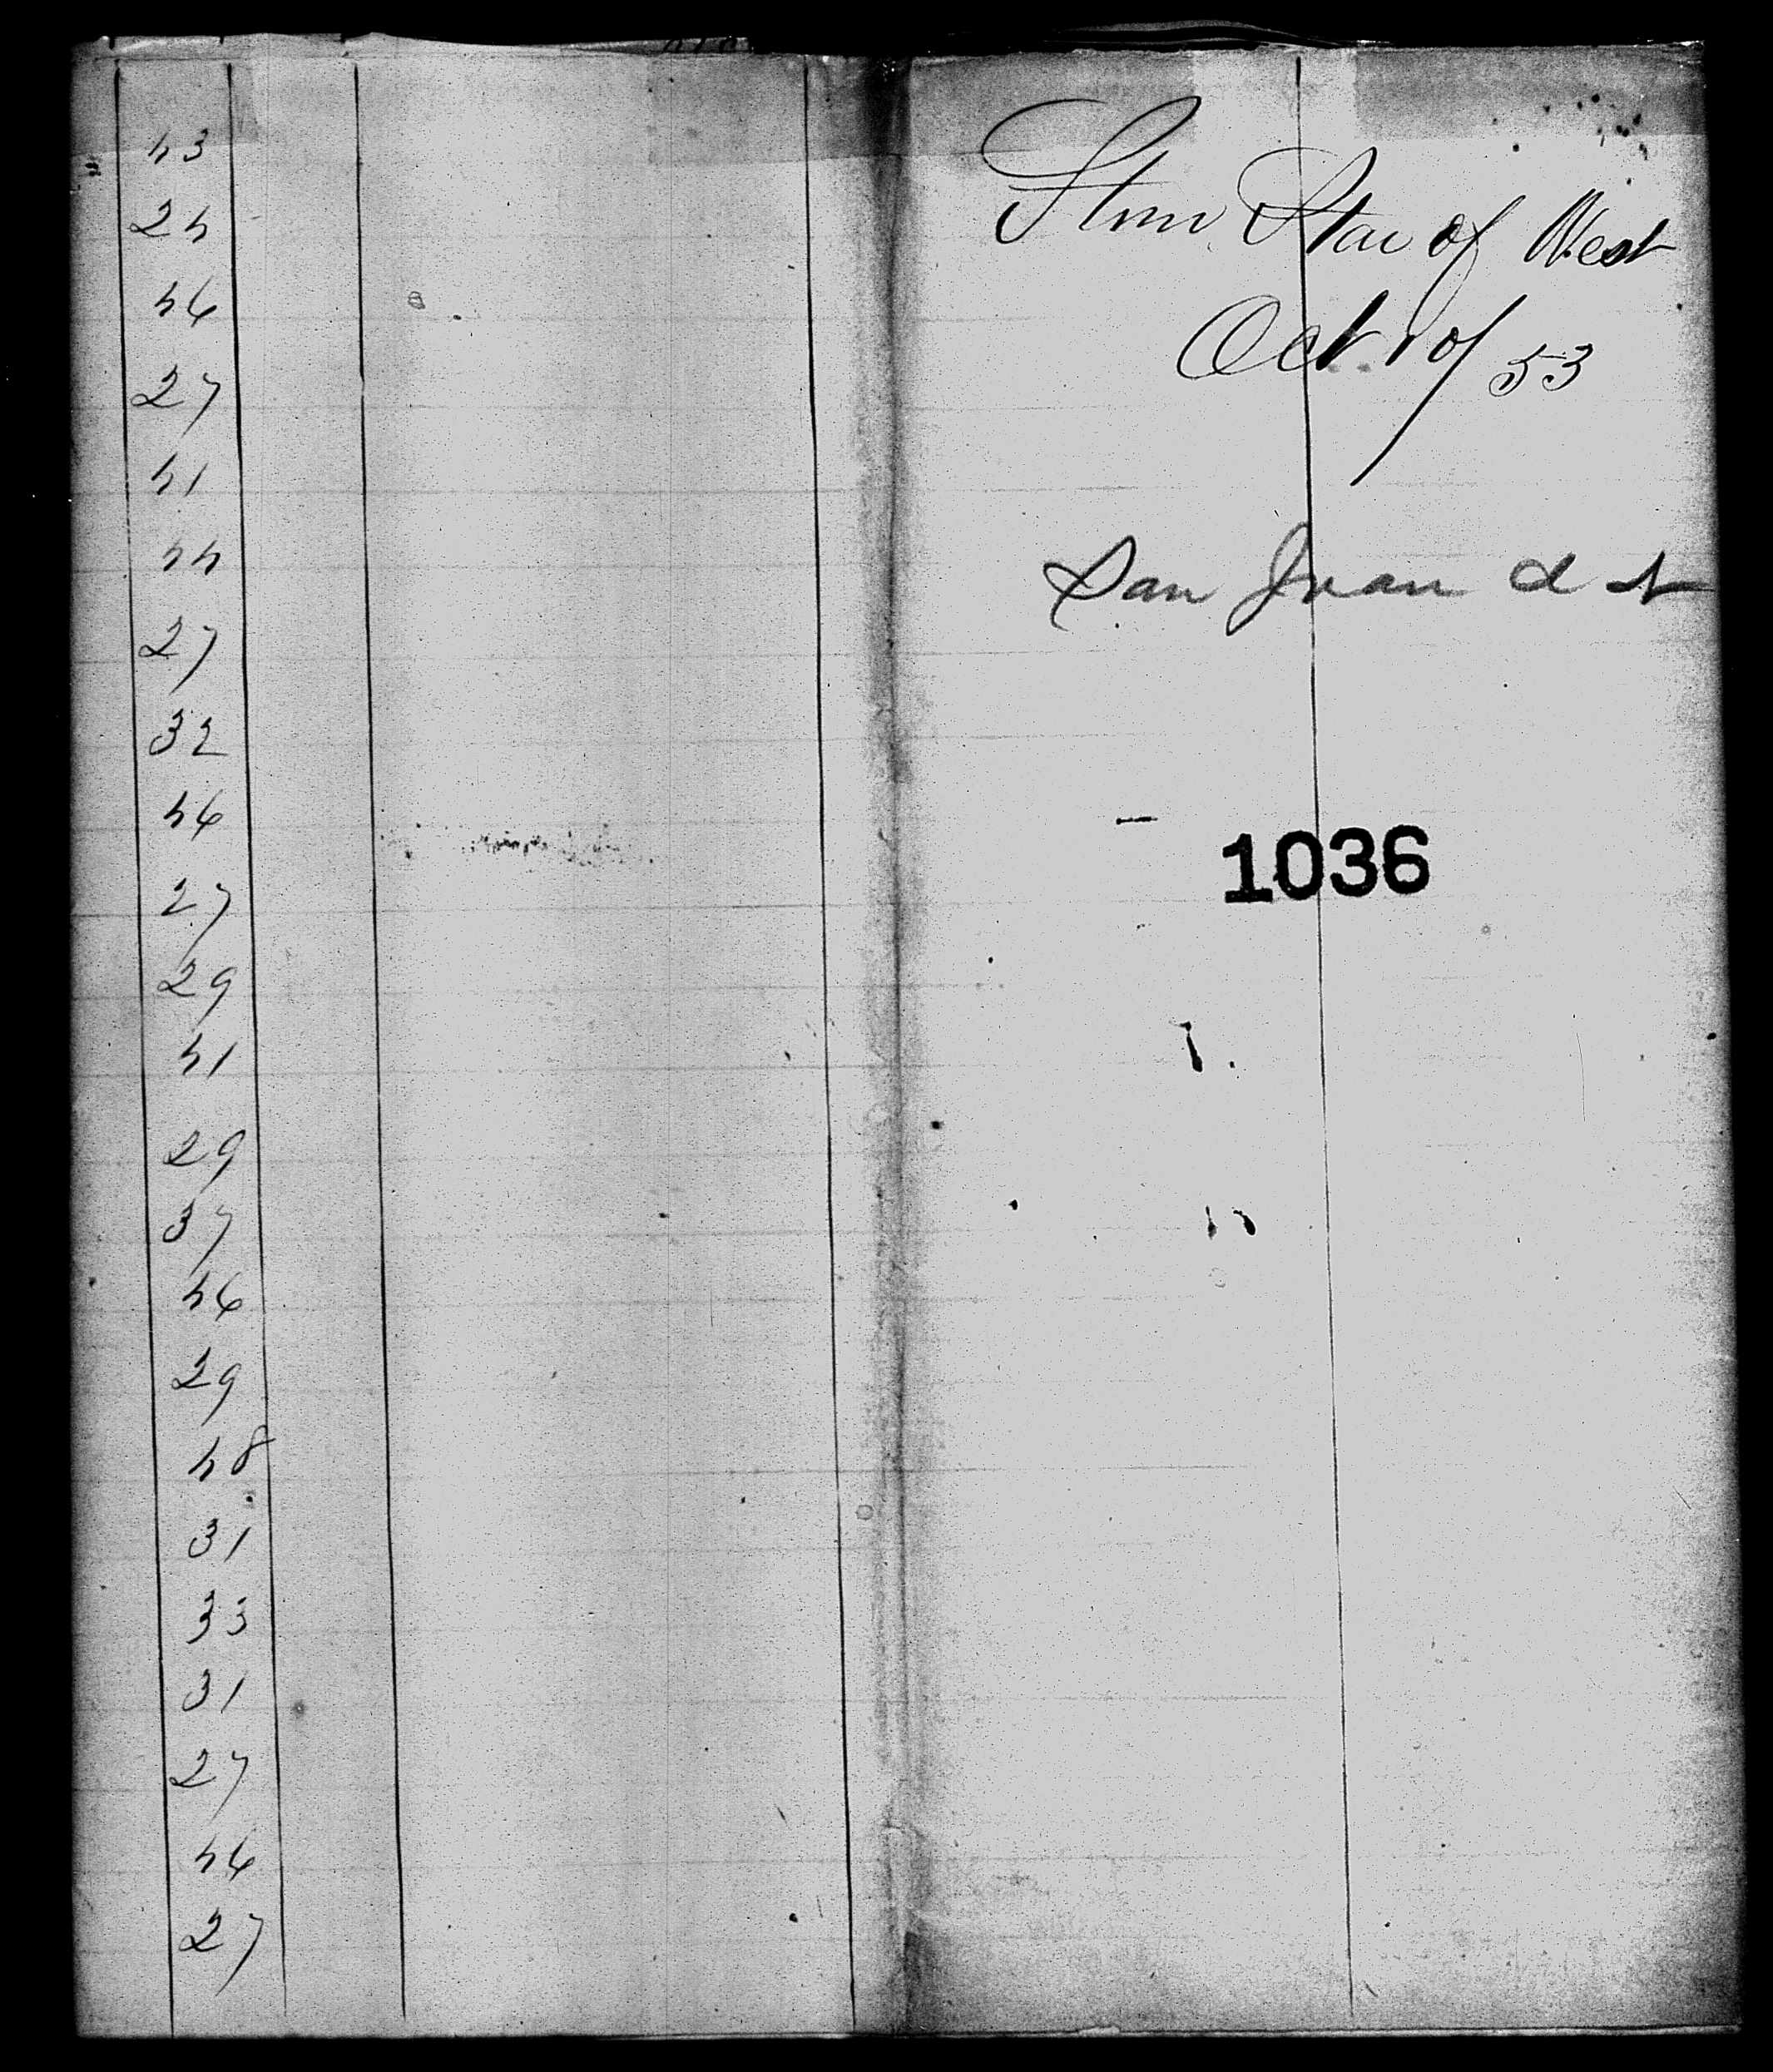 43
24
46
27
41
44
27
32
46
27
29
41
29
37
46
29
48
31
33
31
27
46
27
Stmr Star of West
Oct 10/53
San Juan d N
1036